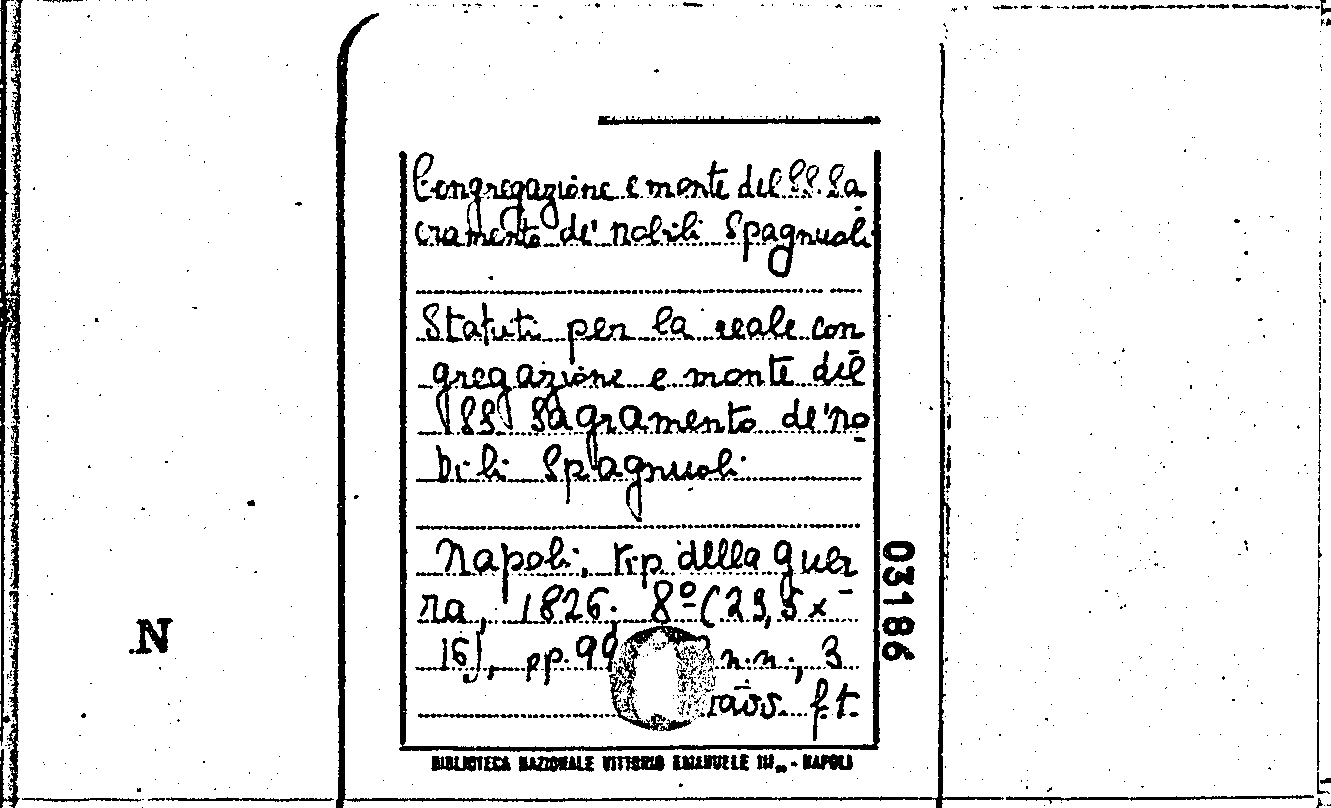 Congregazione e monte del SS. Sa
cramento de' nobili Spagnuoli
Statuti per la reale con
gregazione e monte del
SS Sagramento de' no
bili Spagnuoli
Napoli, tip. della guer
ra, 1826. 8º (23,5 x
16), pp. 99 n.n., 3
f.t.
03186
N
BIBLIOTECA NAZIONALE VITTORIO EMANUELE III - NAPOLI